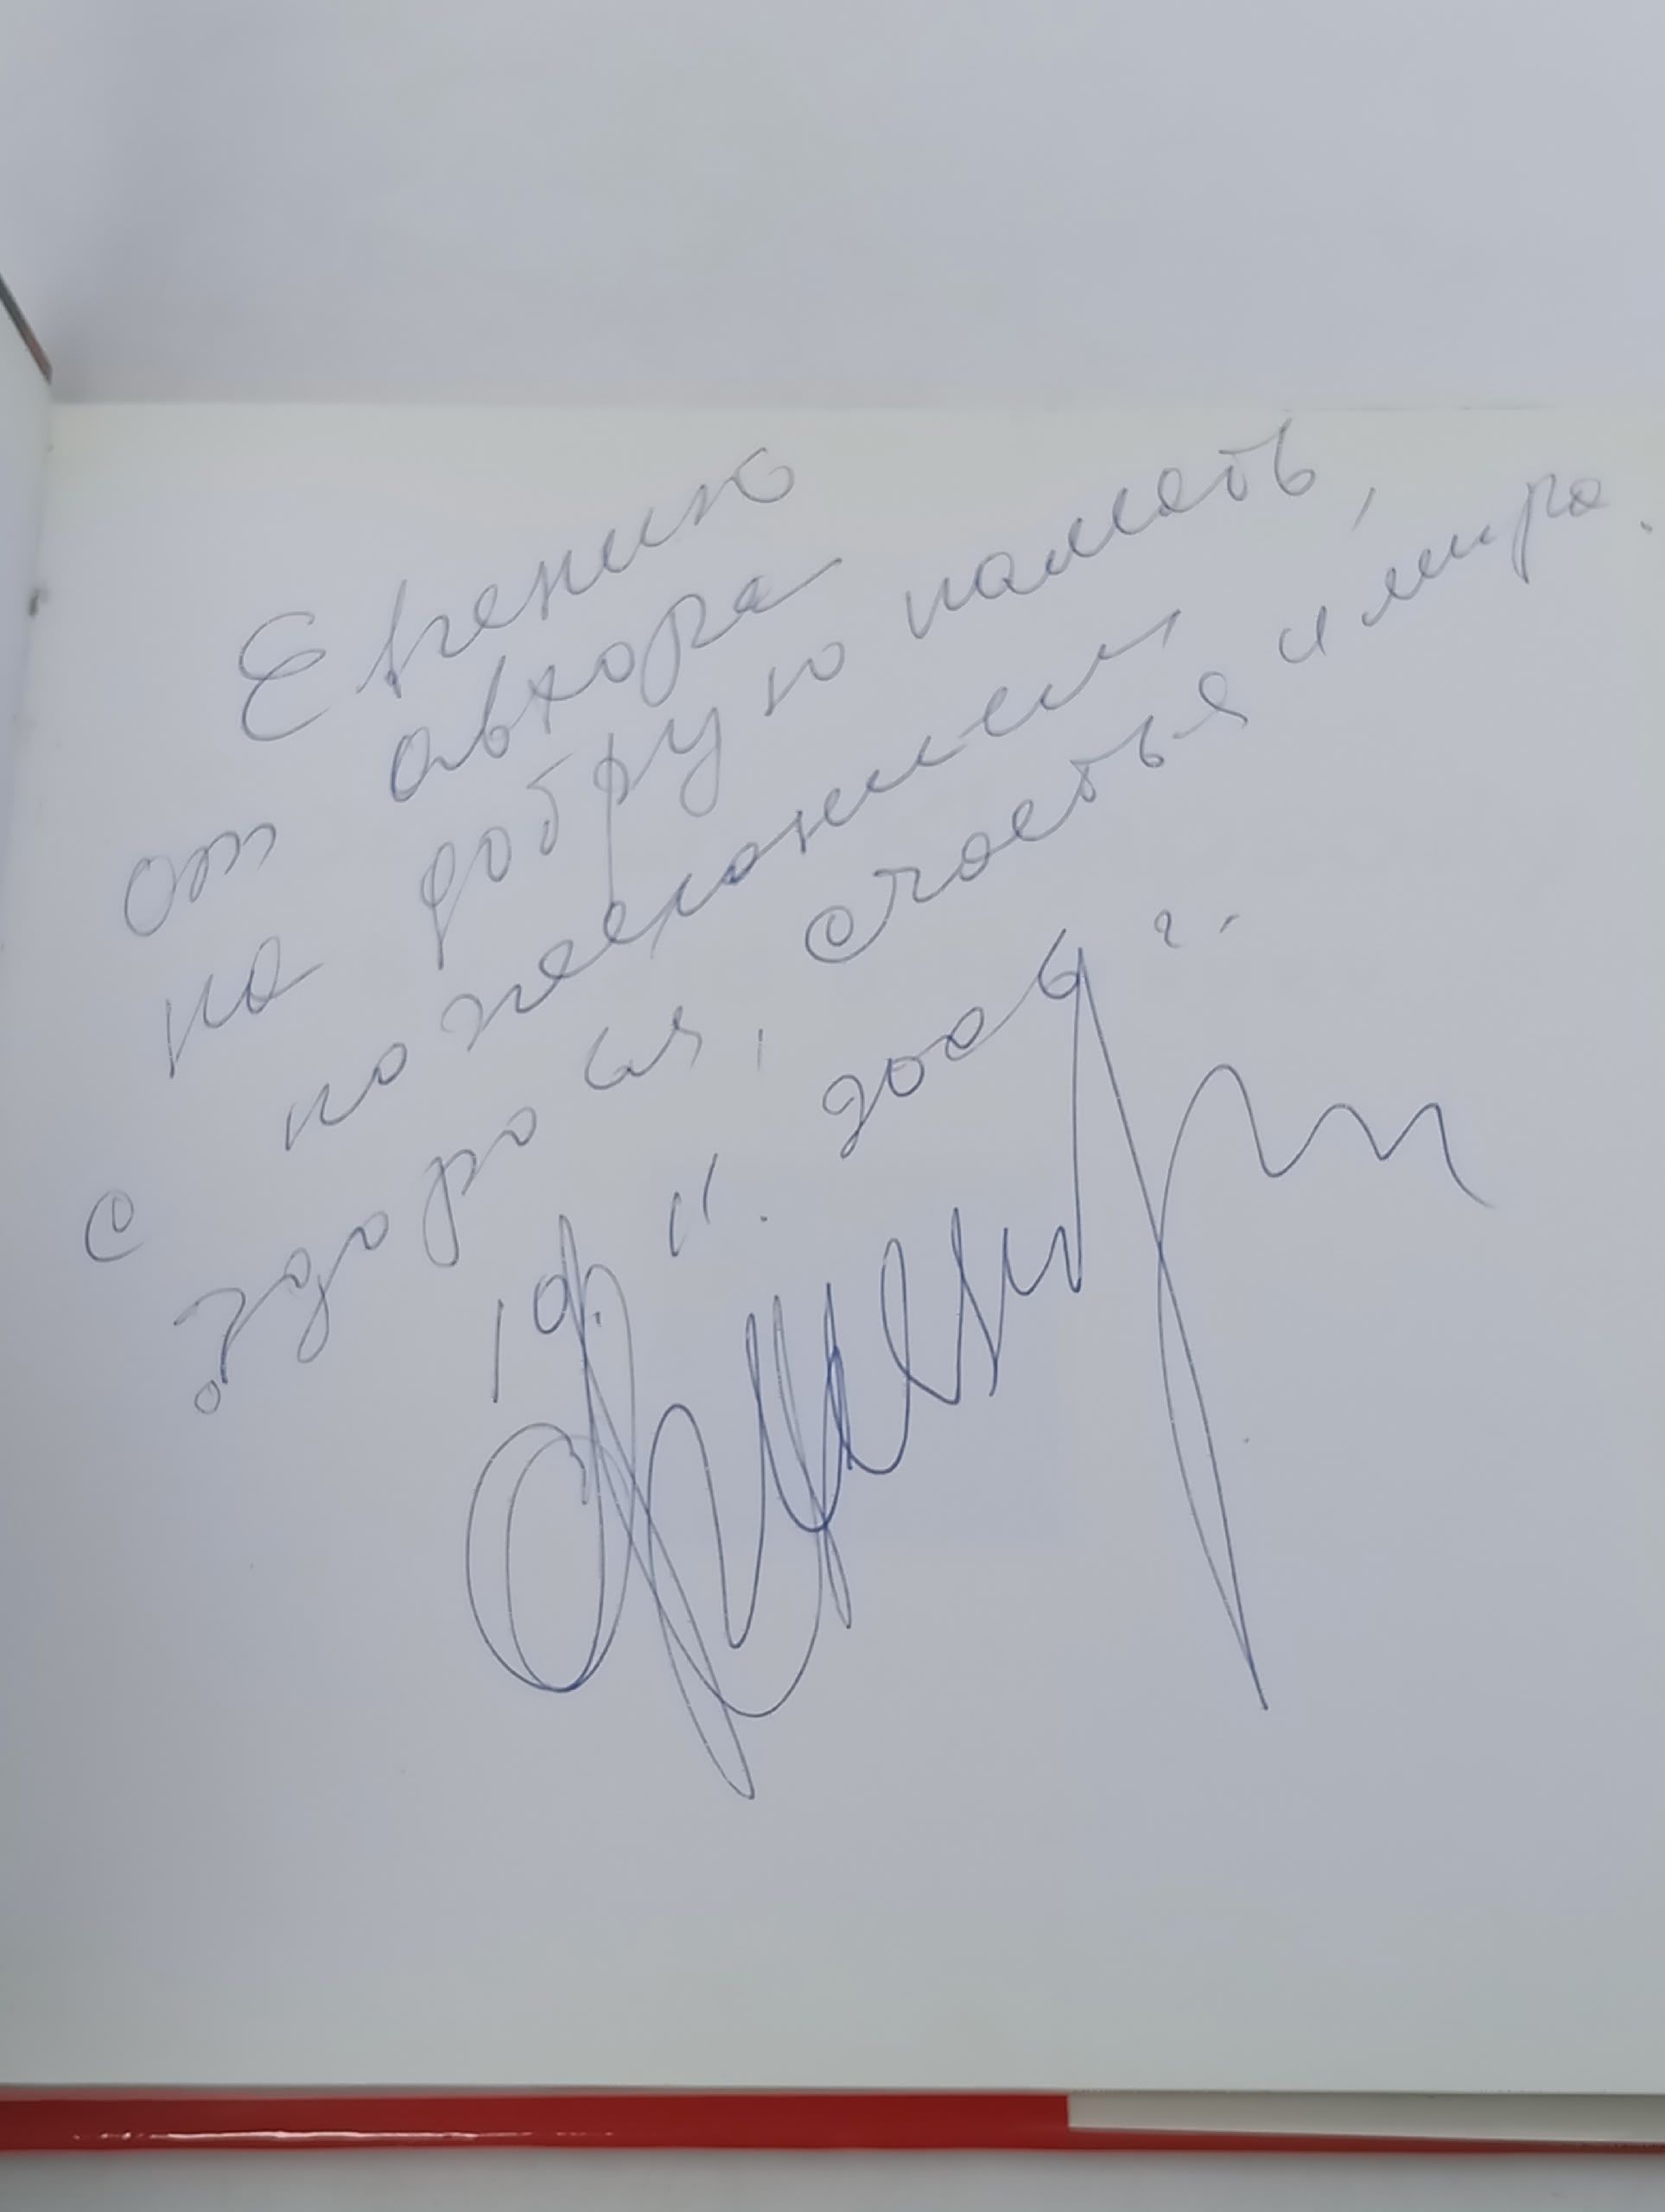 Евгению
от автора
на добрую память,
с пожеланием
здоровья, счастья и мира.
10. 11. 2006 г.